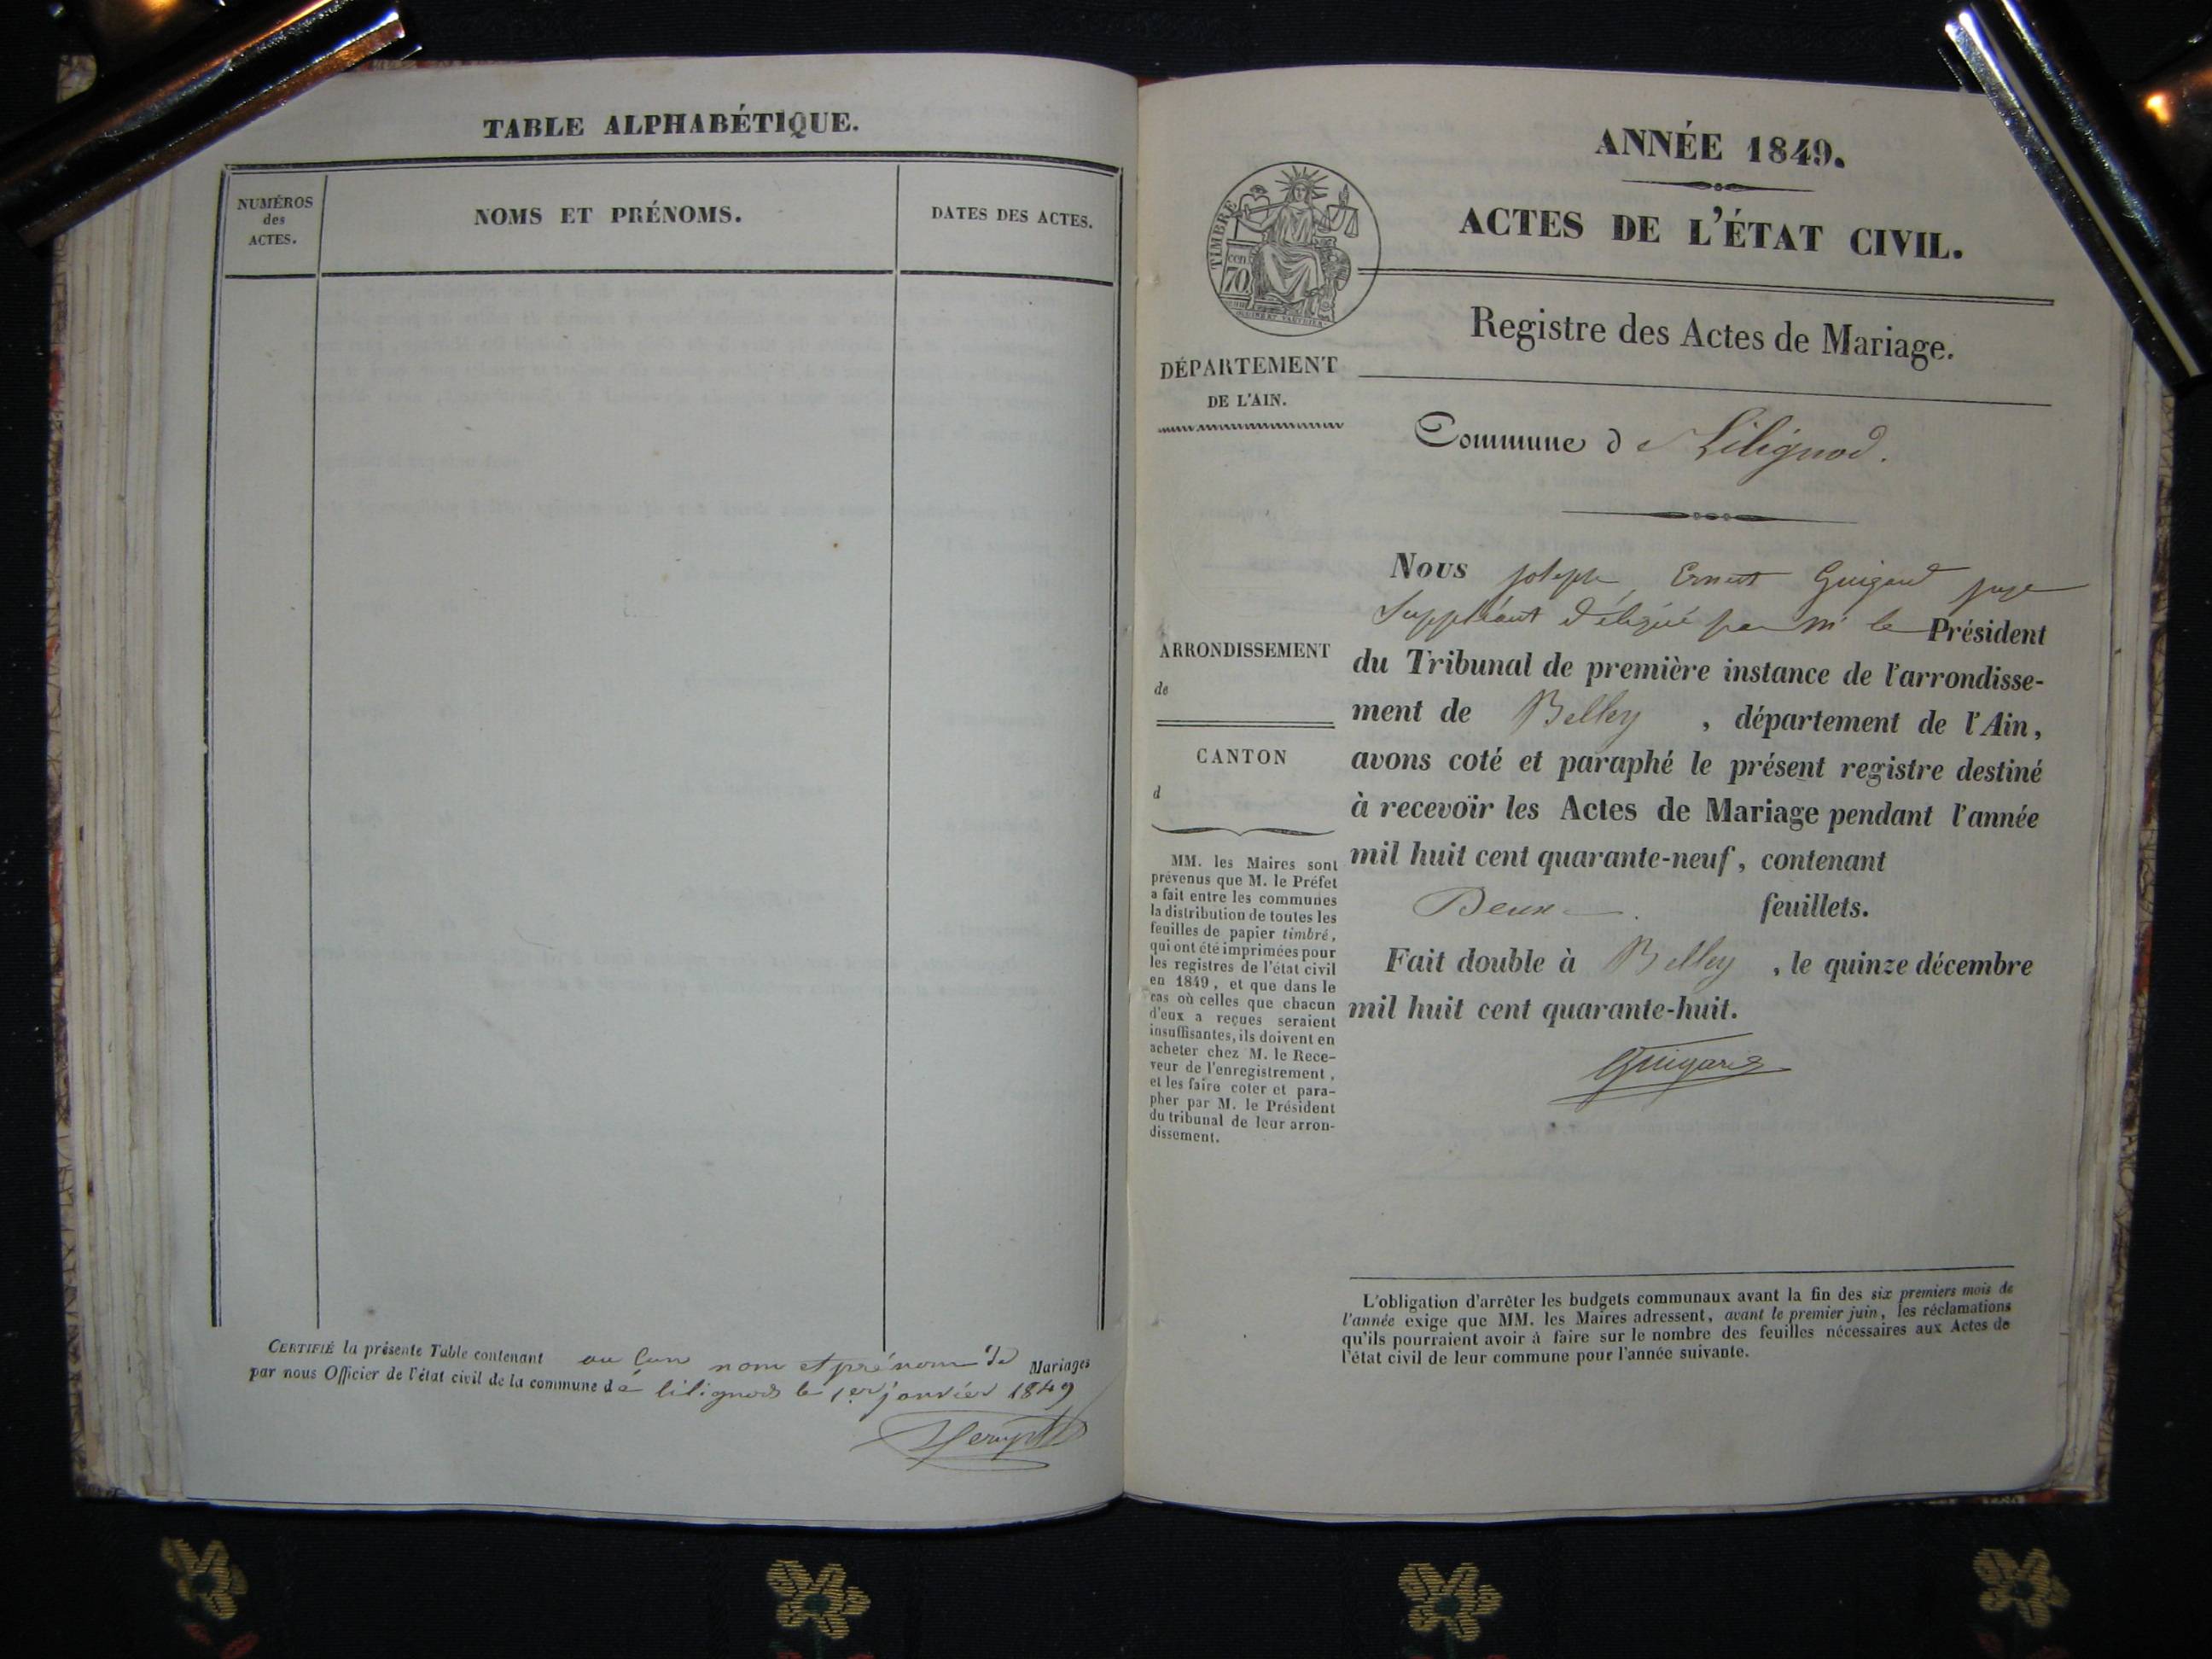 TABLE ALPHABÉTIQUE.
NUMÉROS
des
ACTES.
NOMS ET PRÉNOMS.
DATES DES ACTES.
CERTIFIÉ la présente Table contenant au cun nom et prénom de Mariages
par nous Officier de l'état civil de la commune d é lilignod le 1er janvier 1849
ANNÉE 1849.
ACTES DE L'ÉTAT CIVIL.
TIMBRE
cen
70
Registre des Actes de Mariage.
DÉPARTEMENT
DE L'AIN.
Commune d e Lilignod.
Nous joseph Ernest Guigard juge
Suppléant délégué par mr le Président
du Tribunal de première instance de l'arrondisse-
ment de Belley , département de l'Ain,
avons coté et paraphé le présent registre destiné
à recevoir les Actes de Mariage pendant l'année
mil huit cent quarante-neuf, contenant
Deux feuillets.
Fait double à Belley , le quinze décembre
mil huit cent quarante-huit.
Guigard
ARRONDISSEMENT
de
CANTON
d
MM. les Maires sont
prévenus que M. le Préfet
a fait entre les communes
la distribution de toutes les
feuilles de papier timbré,
qui ont été imprimées pour
les registres de l'état civil
en 1849, et que dans le
cas où celles que chacun
d'eux a reçues seraient
insuffisantes, ils doivent en
acheter chez M. le Rece-
veur de l'enregistrement,
et les faire coter et para-
pher par M. le Président
du tribunal de leur arron-
dissement.
L'obligation d'arrêter les budgets communaux avant la fin des six premiers mois de
l'année exige que MM. les Maires adressent, avant le premier juin, les réclamations
qu'ils pourraient avoir à faire sur le nombre des feuilles nécessaires aux Actes de
l'état civil de leur commune pour l'année suivante.